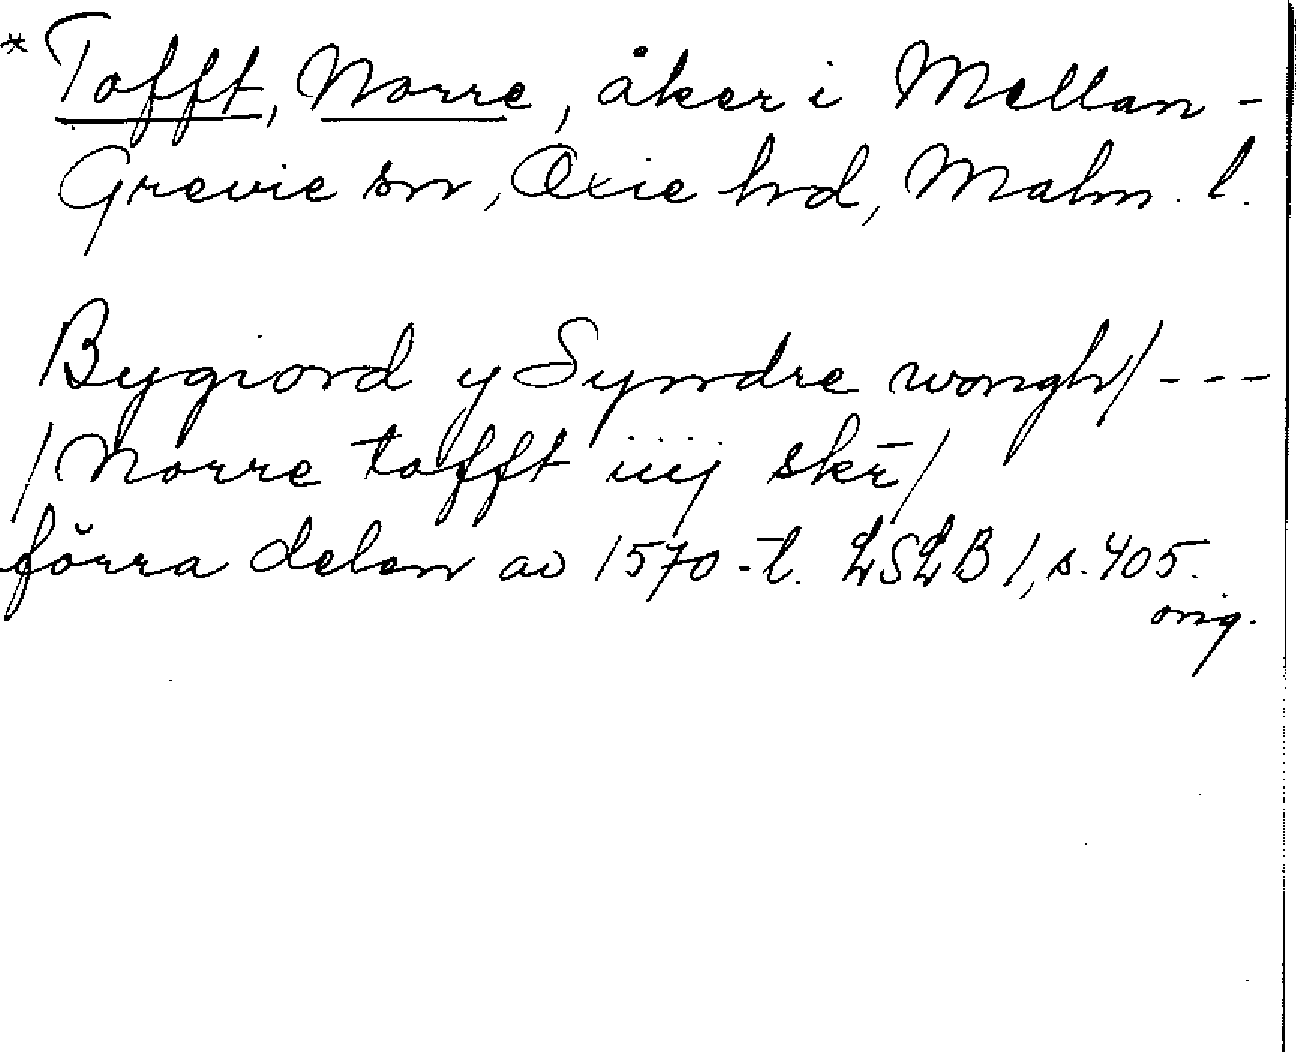 * Tofft, Norre, åker i Mellan-
Grevie sn, Oxie hd, Malm. l.
Bygiord y Syndre wongh/ ---
/Norre tofft iiij skr̄/
förra delen av 1570-t. LSLB 1, s. 405.
orig.